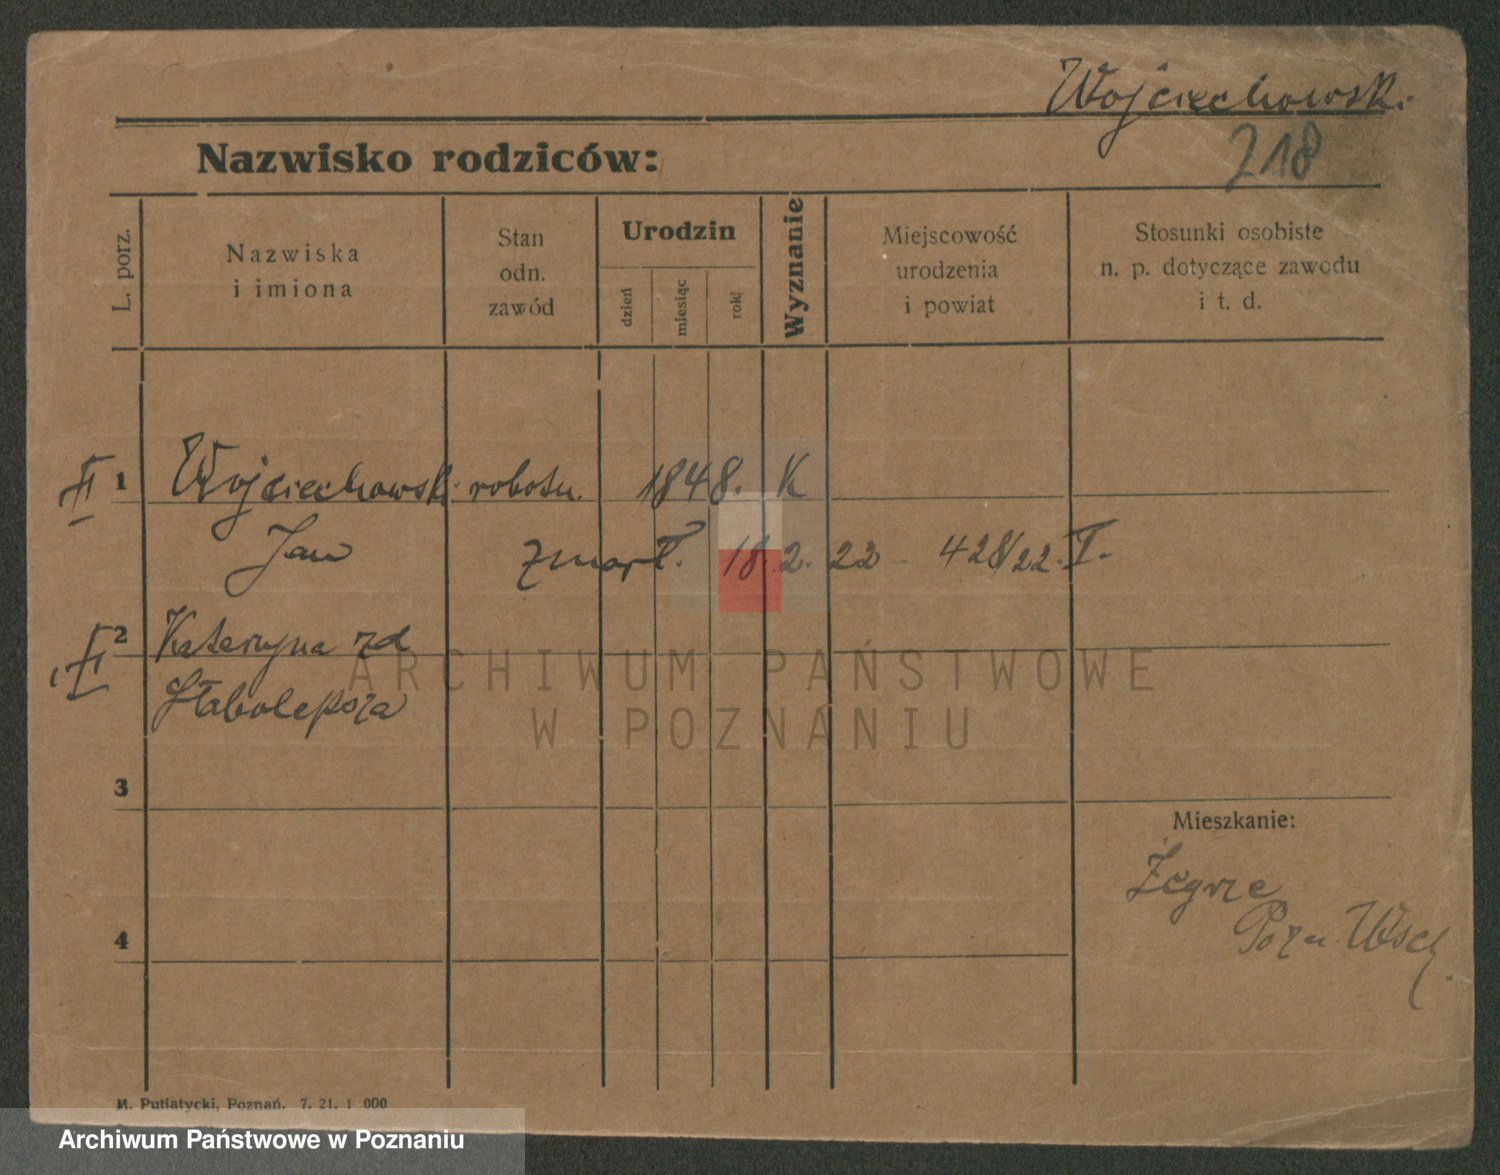 Wojciechowsk.
218
Nazwisko rodziców:
L. porz.
Nazwiska
i imiona
Stan
odn.
zawód
Urodzin
dzień
miesiąc
rok
Wyznanie
Miejscowość
urodzenia
i powiat
Stosunki osobiste
n. p. dotyczące zawodu
i t. d.
1 Wojciechowsk. robotn. 1848. K
Jan zmarł. 18. 2. 22 428/22. I.
2 Katarzyna zd
Słabolepsza
3
Mieszkanie:
Żegrze
Pozn. Wsch.
4
M. Putiatycki, Poznań. 7. 21. 1 000
ARCHIWUM PAŃSTWOWE
W POZNANIU
Archiwum Państwowe w Poznaniu